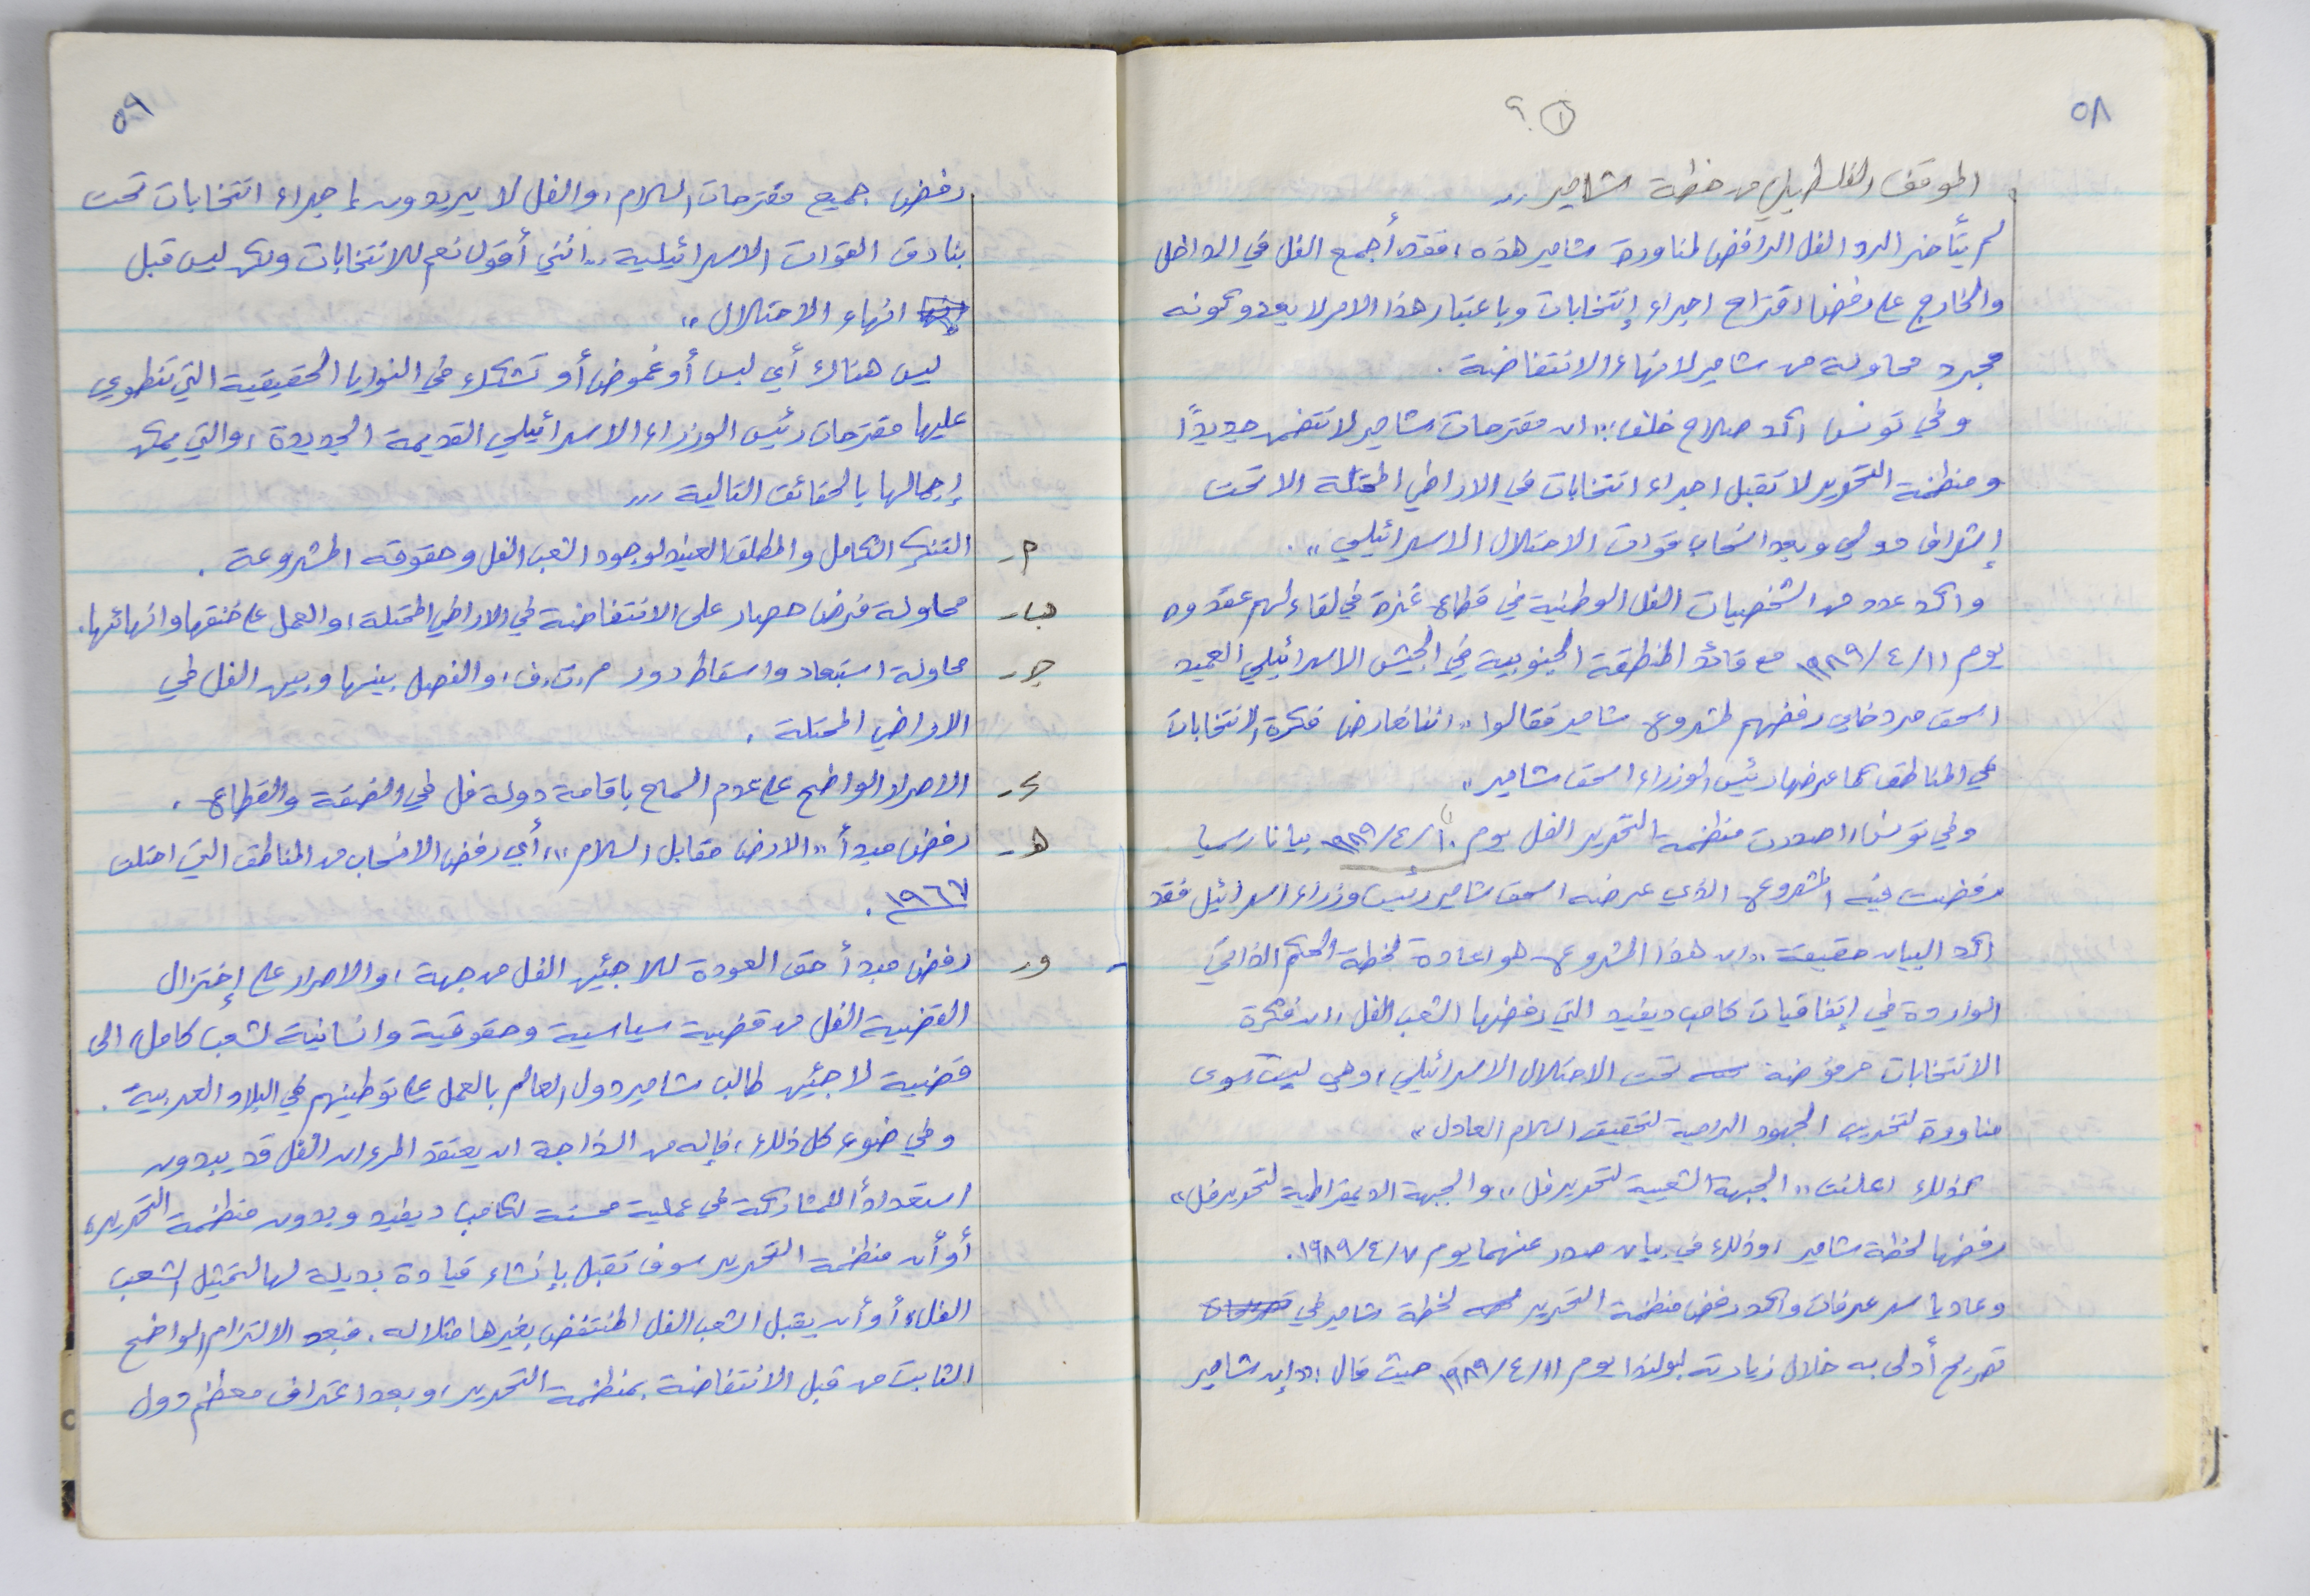 ٥٨
١ ؟
الموقف الفلسطيني من خطة شامير ..
لم يتأخر الرد الفل الرافض لمناورة شامير هذه ، فقد أجمع الفل في الداخل
والخارج على رفض اقتراح اجراء إنتخابات وباعتبار هذا الامر لا يعدو كونه
مجرد محاولة من شامير لانهاء الانتفاضة .
وفي تونس اكد صلاح خلف : " ان مقترحات شامير لا تتضمن جديداً
ومنظمة التحرير لا تقبل اجراء انتخابات في الاراضي المحتلة الا تحت
إشراف دولي وبعد انسحاب قوات الاحتلال الاسرائيلي " .
واكد عدد من الشخصيات الفل الوطنية في قطاع غزة في لقاء لهم عقدوه
يوم ١١/٤/١٩٨٩ مع قائد المنطقة الجنوبية في الجيش الاسرائيلي العميد
اسحق مردخاي رفضهم لمشروع شامير فقالوا " اننا نعارض فكرة الانتخابات
في المناطق كما عرضها رئيس الوزراء اسحق شامير "
وفي تونس ، اصدرت منظمة التحرير الفل يوم ١٠/٤/١٩٨٩ بيانا رسميا
رفضت فيه المشروع الذي عرضه اسحق شامير رئيس وزراء اسرائيل فقد
اكد البيان حقيقة " ان هذا المشروع هو اعادة لخطة الحكم الذاتي
الواردة في إتفاقيات كامب ديفيد التي رفضها الشعب الفل ، ان فكرة
الانتخابات مرفوضة تحت الاحتلال الاسرائيلي ، وهي ليست سوى
مناورة لتخريب الجهود الرامية لتحقيق السلام العادل "
كذلك اعلنت " الجبهة الشعبية لتحرير فل " ، والجبهة الديمقراطية لتحرير فل "
رفضها لخطة شامير ، وذلك في بيان صدر عنهما يوم ٧/٤/١٩٨٩ .
وعاد ياسر عرفات واكد رفض منظمة التحرير لخطة شامير في
تصريح أدلى به خلال زيارته لبولندا يوم ١١/٤/١٩٨٩ حيث قال : " إن شامير
٥٩
رفض جميع مقترحات السلام ، والفل لا يريدون إجراء انتخابات تحت
بنادق القوات الاسرائيلية .. انني أقول نعم للانتخابات ولكن ليس قبل
انهاء الاحتلال "
ليس هناك أي لبس أو غموض أو تشكك في النوايا الحقيقية التي تنطوي
عليها مقترحات رئيس الوزراء الاسرائيلي القديمة الجديدة ، والتي يمكن
إجمالها بالحقائق التالية ...
م - التنكر الكامل والمطلق العنيد لوجود الشعب الفل وحقوقه المشروعة .
ب - محاولة فرض حصار على الانتفاضة في الاراضي المحتلة ، والعمل على خنقها وانهائها .
ج - محاولة استبعاد واسقاط دور م . ت . ف ، والفصل بينها وبين الفل في
الاراضي المحتلة .
د - الاصرار الواضح على عدم السماح باقامة دولة فل في الضفة والقطاع .
هـ - رفض مبدأ " الارض مقابل السلام " ، أي رفض الانسحاب من المناطق التي احتلت
١٩٦٧ .
و - رفض مبدأ حق العودة للاجئين الفل من جهة ، والاصرار على إختزال
القضية الفل من قضية سياسية وحقوقية وانسانية لشعب كامل ، الى
قضية لاجئين طالب شامير دول العالم بالعمل على توطينهم في البلاد العربية .
وفي ضوء كل ذلك ، فإنه من السذاجة ان يعتقد المرء ان الفل قد يبدون
استعداداً للمشاركة في عملية محسنة لكامب ديفيد وبدون منظمة التحرير ،
أو أن منظمة التحرير سوف تقبل بإنشاء قيادة بديلة لها لتمثيل الشعب
الفل ، أو أن يقبل الشعب الفل المنتفض بغيرها مثلا له . فبعد الالتزام الواضح
الثابت من قبل الانتفاضة بمنظمة التحرير ، وبعد اعتراف معظم دول